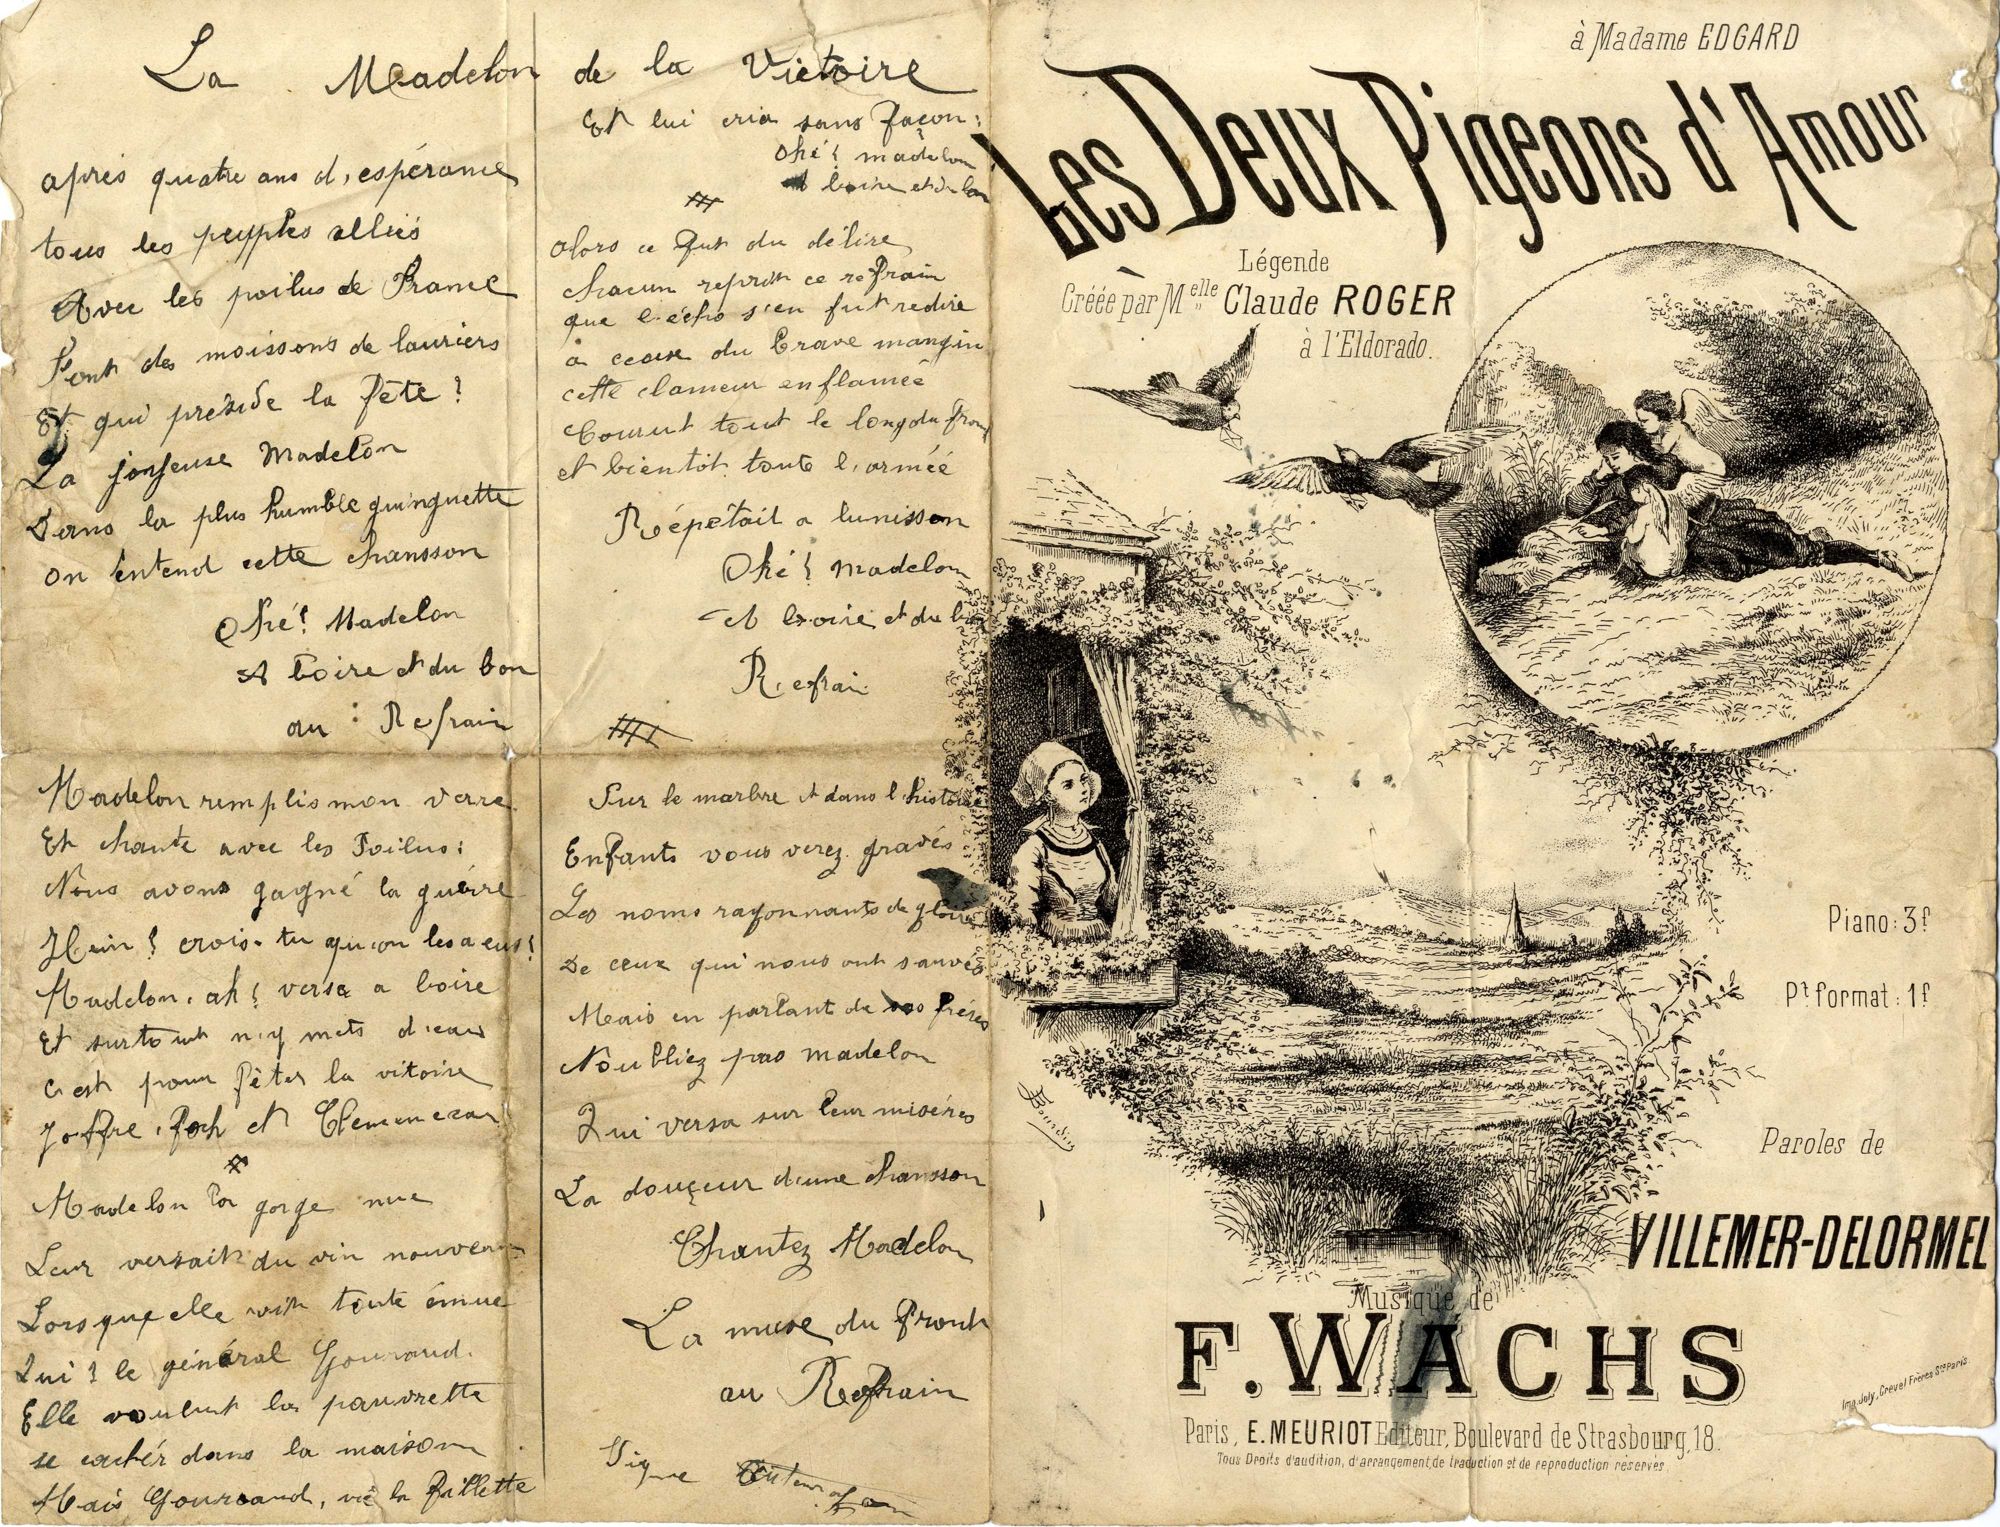 La Madelon de la Victoire
après quatre ans d'espérance
tous les peuples alliés
Avec les poilus de France
Font des moissons de lauriers
Et qui préside la Fête ?
La joyeuse Madelon
Dans la plus humble guinguette
on entend cette chansson
Ohé ! Madelon
A boire et du bon
au : Refrain
Madelon remplis mon verre
Et chante avec les Poilus :
Nous avons gagné la guérre
Hein ! crois-tu qu'on les a eus !
Madelon, ah ! verse a boire
Et surtout n'y mets d'eau
c'est pour fêter la vitoire
Joffre, Foch et Clemenceau
Madelon la gorge nue
Leur versait du vin nouveau
Lorsqu'elle vit toute émue
Qui ? le général Gouraud.
Elle voulut la pauvrette
se cachér dans la maison
Mais Gouraud, vit la fillette
Et lui cria sans façon :
Ohé ! madelon
A boire et du bon
alors ce fut du délire
chacun reprit ce refrain
que l'écho s'en fut redire
à cause du brave mangin
cette clameur enflamée
Courut tout le long du front
et bientôt toute l'armée
Répetait a lunisson
Ohé ! Madelon
A boire et du bon
Refrain
Sur le marbre et dans l'histoire
Enfants vous verez gravés
Les noms rayonnants de gloire
De ceux qui nous ont sauvés
Mais en parlant de nos fréres
N'oubliez pas madelon
Qui versa sur leur miséres
La douçeur d'une chansson
Chantez Madelon
La muse du Front
au Refrain
Signe
à Madame EDGARD
Les Deux Pigeons d'Amour
Légende
Créée par Melle Claude ROGER
à l'Eldorado.
Piano : 3f
Pt format : 1f
Paroles de
VILLEMER-DELORMEL
Musique de
F. WACHS
Imp. Joly, Crevel Frères Srs Paris.
Paris, E. MEURIOT Editeur, Boulevard de Strasbourg, 18.
Tous Droits d'audition, d'arrangement, de traduction et de reproduction réservés.